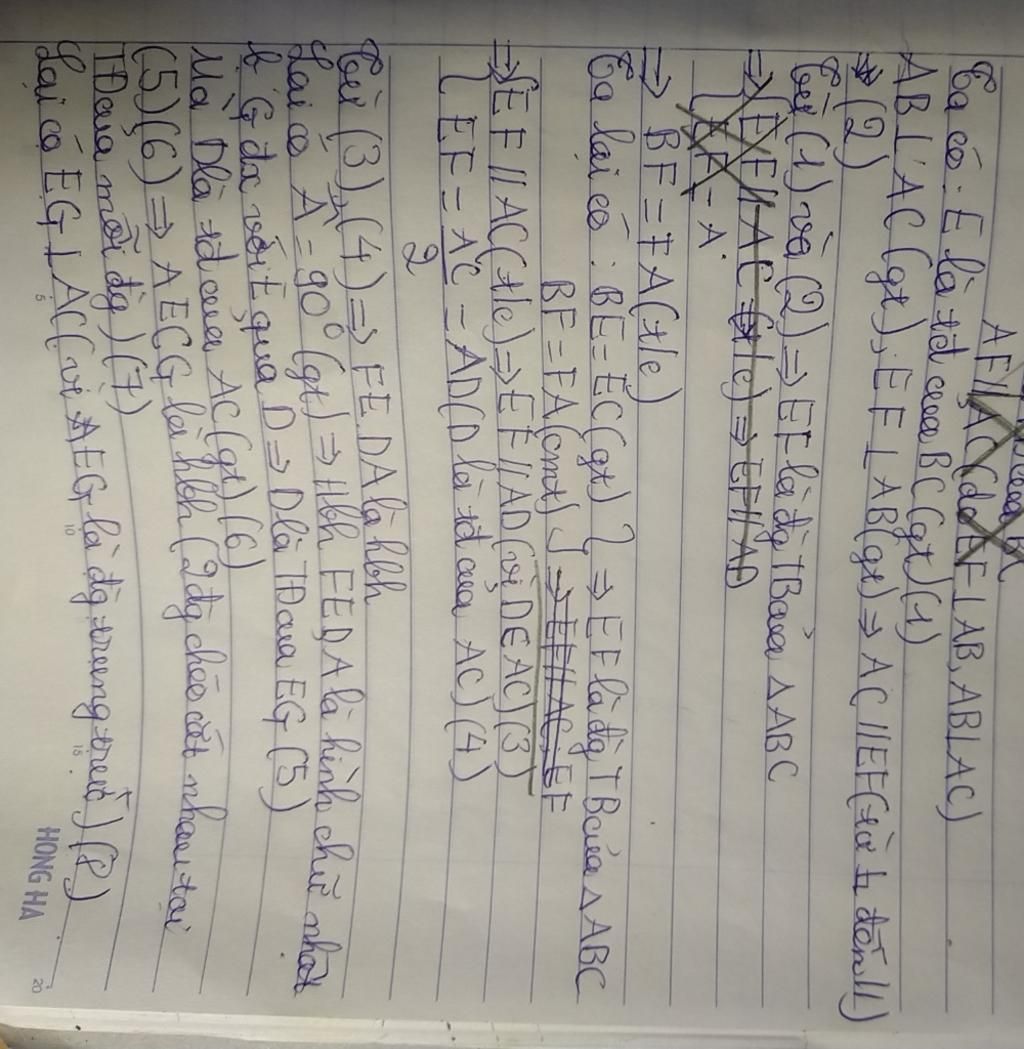 AF // AC (do EF ⊥ AB, AB ⊥ AC)
Ta có: E là tđ của BC (gt) (1)
AB ⊥ AC (gt); EF ⊥ AB (gt) ⇒ AC // EF (từ ⊥ đến //)
⇒ (2)
Từ (1) và (2) ⇒ EF là đg TB của △ ABC
⇒ { EF // AC (t/c) ⇒ EF // AD
EF = A
⇒ BF = FA (t/c)
Ta lại có: BE = EC (gt) } ⇒ EF là đg TB của △ ABC
BF = FA (cmt) ⇒ EF // AC; EF
⇒ { EF // AC (t/c) ⇒ EF // AD (vì D ∈ AC) (3)
EF = AC/2 = AD (D là tđ của AC) (4)
Từ (3), (4) ⇒ FEDA là hbh
Lại có Â = 90° (gt) ⇒ Hbh FEDA là hình chữ nhật
b. G đx với E qua D ⇒ D là TĐ của EG (5)
Mà D là tđ của AC (gt) (6)
(5) (6) ⇒ AECG là hbh (2 đg chéo cắt nhau tại
TĐ của mỗi đg) (7)
Lại có EG ⊥ AC (vì EG là đg trung trực) (8)
HONG HA
5 10 15 20